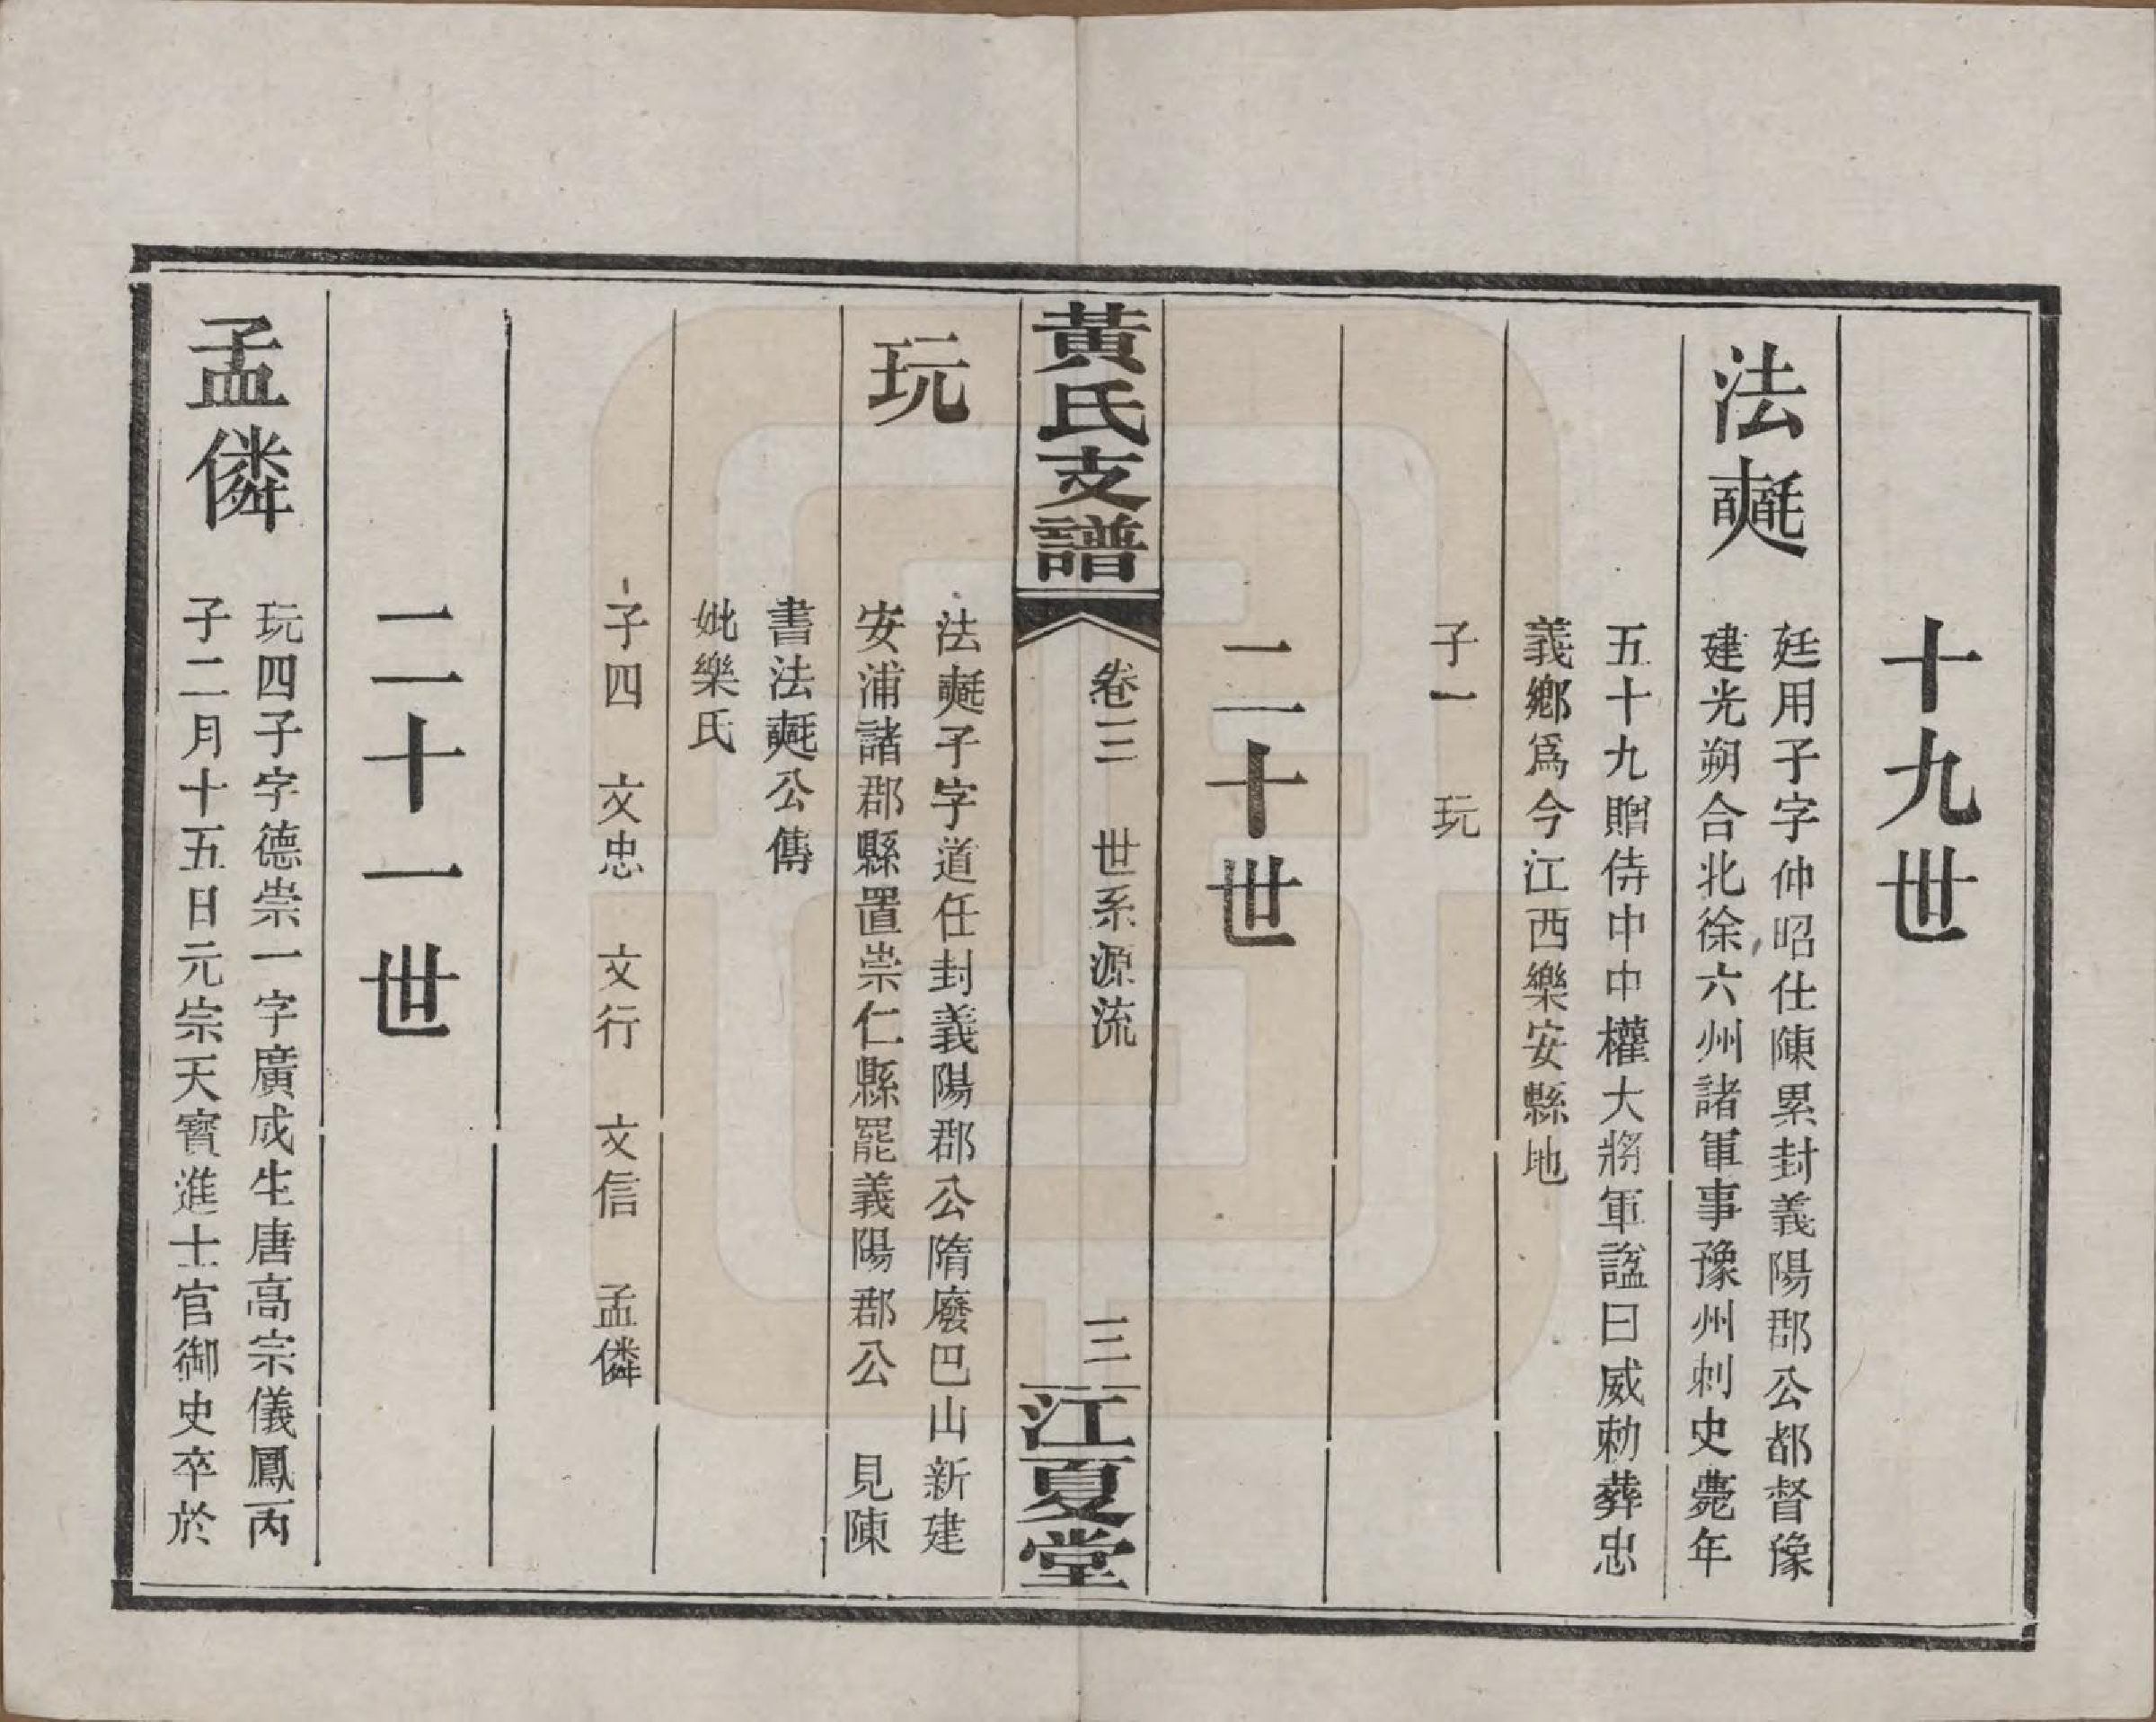 十九世
法𣰰
廷用子字仲昭仕陳累封義陽郡公都督豫
建光朔合北徐六州諸軍事豫州刺史薨年
五十九贈侍中中權大將軍諡曰威勅葬忠
義鄉爲今江西樂安縣地
子一 玩
二十世
黃氏支譜 卷三 世系源流 三 江夏堂
玩
法𣰰子字道任封義陽郡公隋廢巴山新建
安浦諸郡縣置崇仁縣罷義陽郡公 見陳
書法𣰰公傳
妣樂氏
子四 文忠 文行 文信 孟僯
二十一世
孟僯
玩四子字德崇一字廣成生唐高宗儀鳳丙
子二月十五日元宗天寶進士官御史卒於